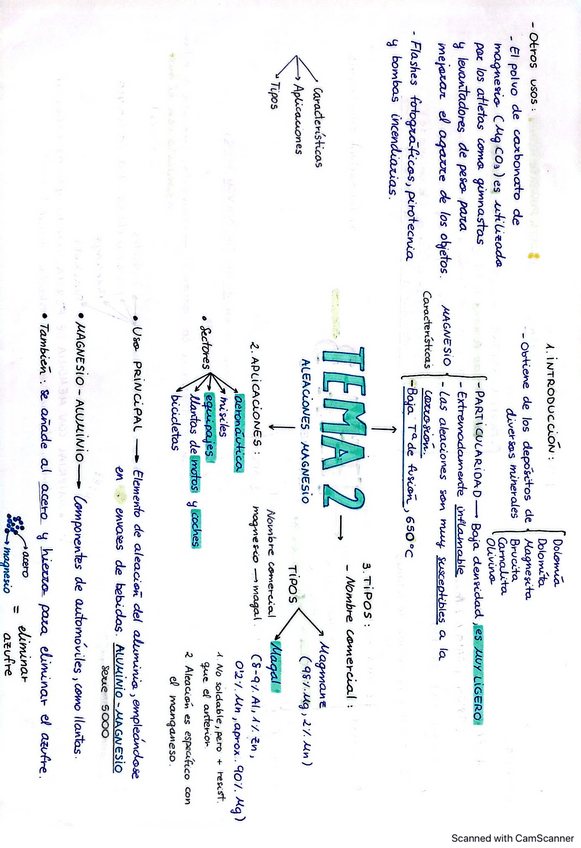 TEMA 2
ALEACIONES MAGNESIO
1. INTRODUCCIÓN:
- Obtiene de los depósitos de
diversos minerales
Dolomia
Dolomita
Magnesita
Brucita
Carnalita
Olivina
MAGNESIO
Características
- PARTICULARIDAD → Baja densidad, es MUY LIGERO
- Extremadamente inflamable
- Las aleaciones son muy susceptibles a la
corrosión.
- Baja Tª de fusión, 650°C
2. APLICACIONES:
• Sectores
aeronáutica
misiles
equipajes
llantas de motos y coches
bicicletas
• Uso PRINCIPAL → Elemento de aleación del aluminio, empleándose
en envases de bebidas. ALUMINIO-MAGNESIO
serie 5000
• MAGNESIO - ALUMINIO → Componentes de automóviles, como llantas.
• También: se añade al acero y hierro para eliminar el azufre.
acero
magnesio
= eliminar
azufre
3. TIPOS:
- Nombre comercial:
TIPOS
Magmane
(98% Mg, 2% Mn)
Magal
(8-9% Al, 1% Zn,
0'2% Mn, aprox. 90% Mg)
1 No soldable, pero + resist.
que el anterior
2 Aleación es específico con
el manganeso.
Nombre comercial
magnesio → magal.
- Otros usos:
- El polvo de carbonato de
magnesio (Mg CO3) es utilizado
por los atletas como gimnastas
y levantadores de peso para
mejorar el agarre de los objetos.
- Flashes fotográficos, pirotecnia
y bombas incendiarias.
Características
Aplicaciones
Tipos
Scanned with CamScanner